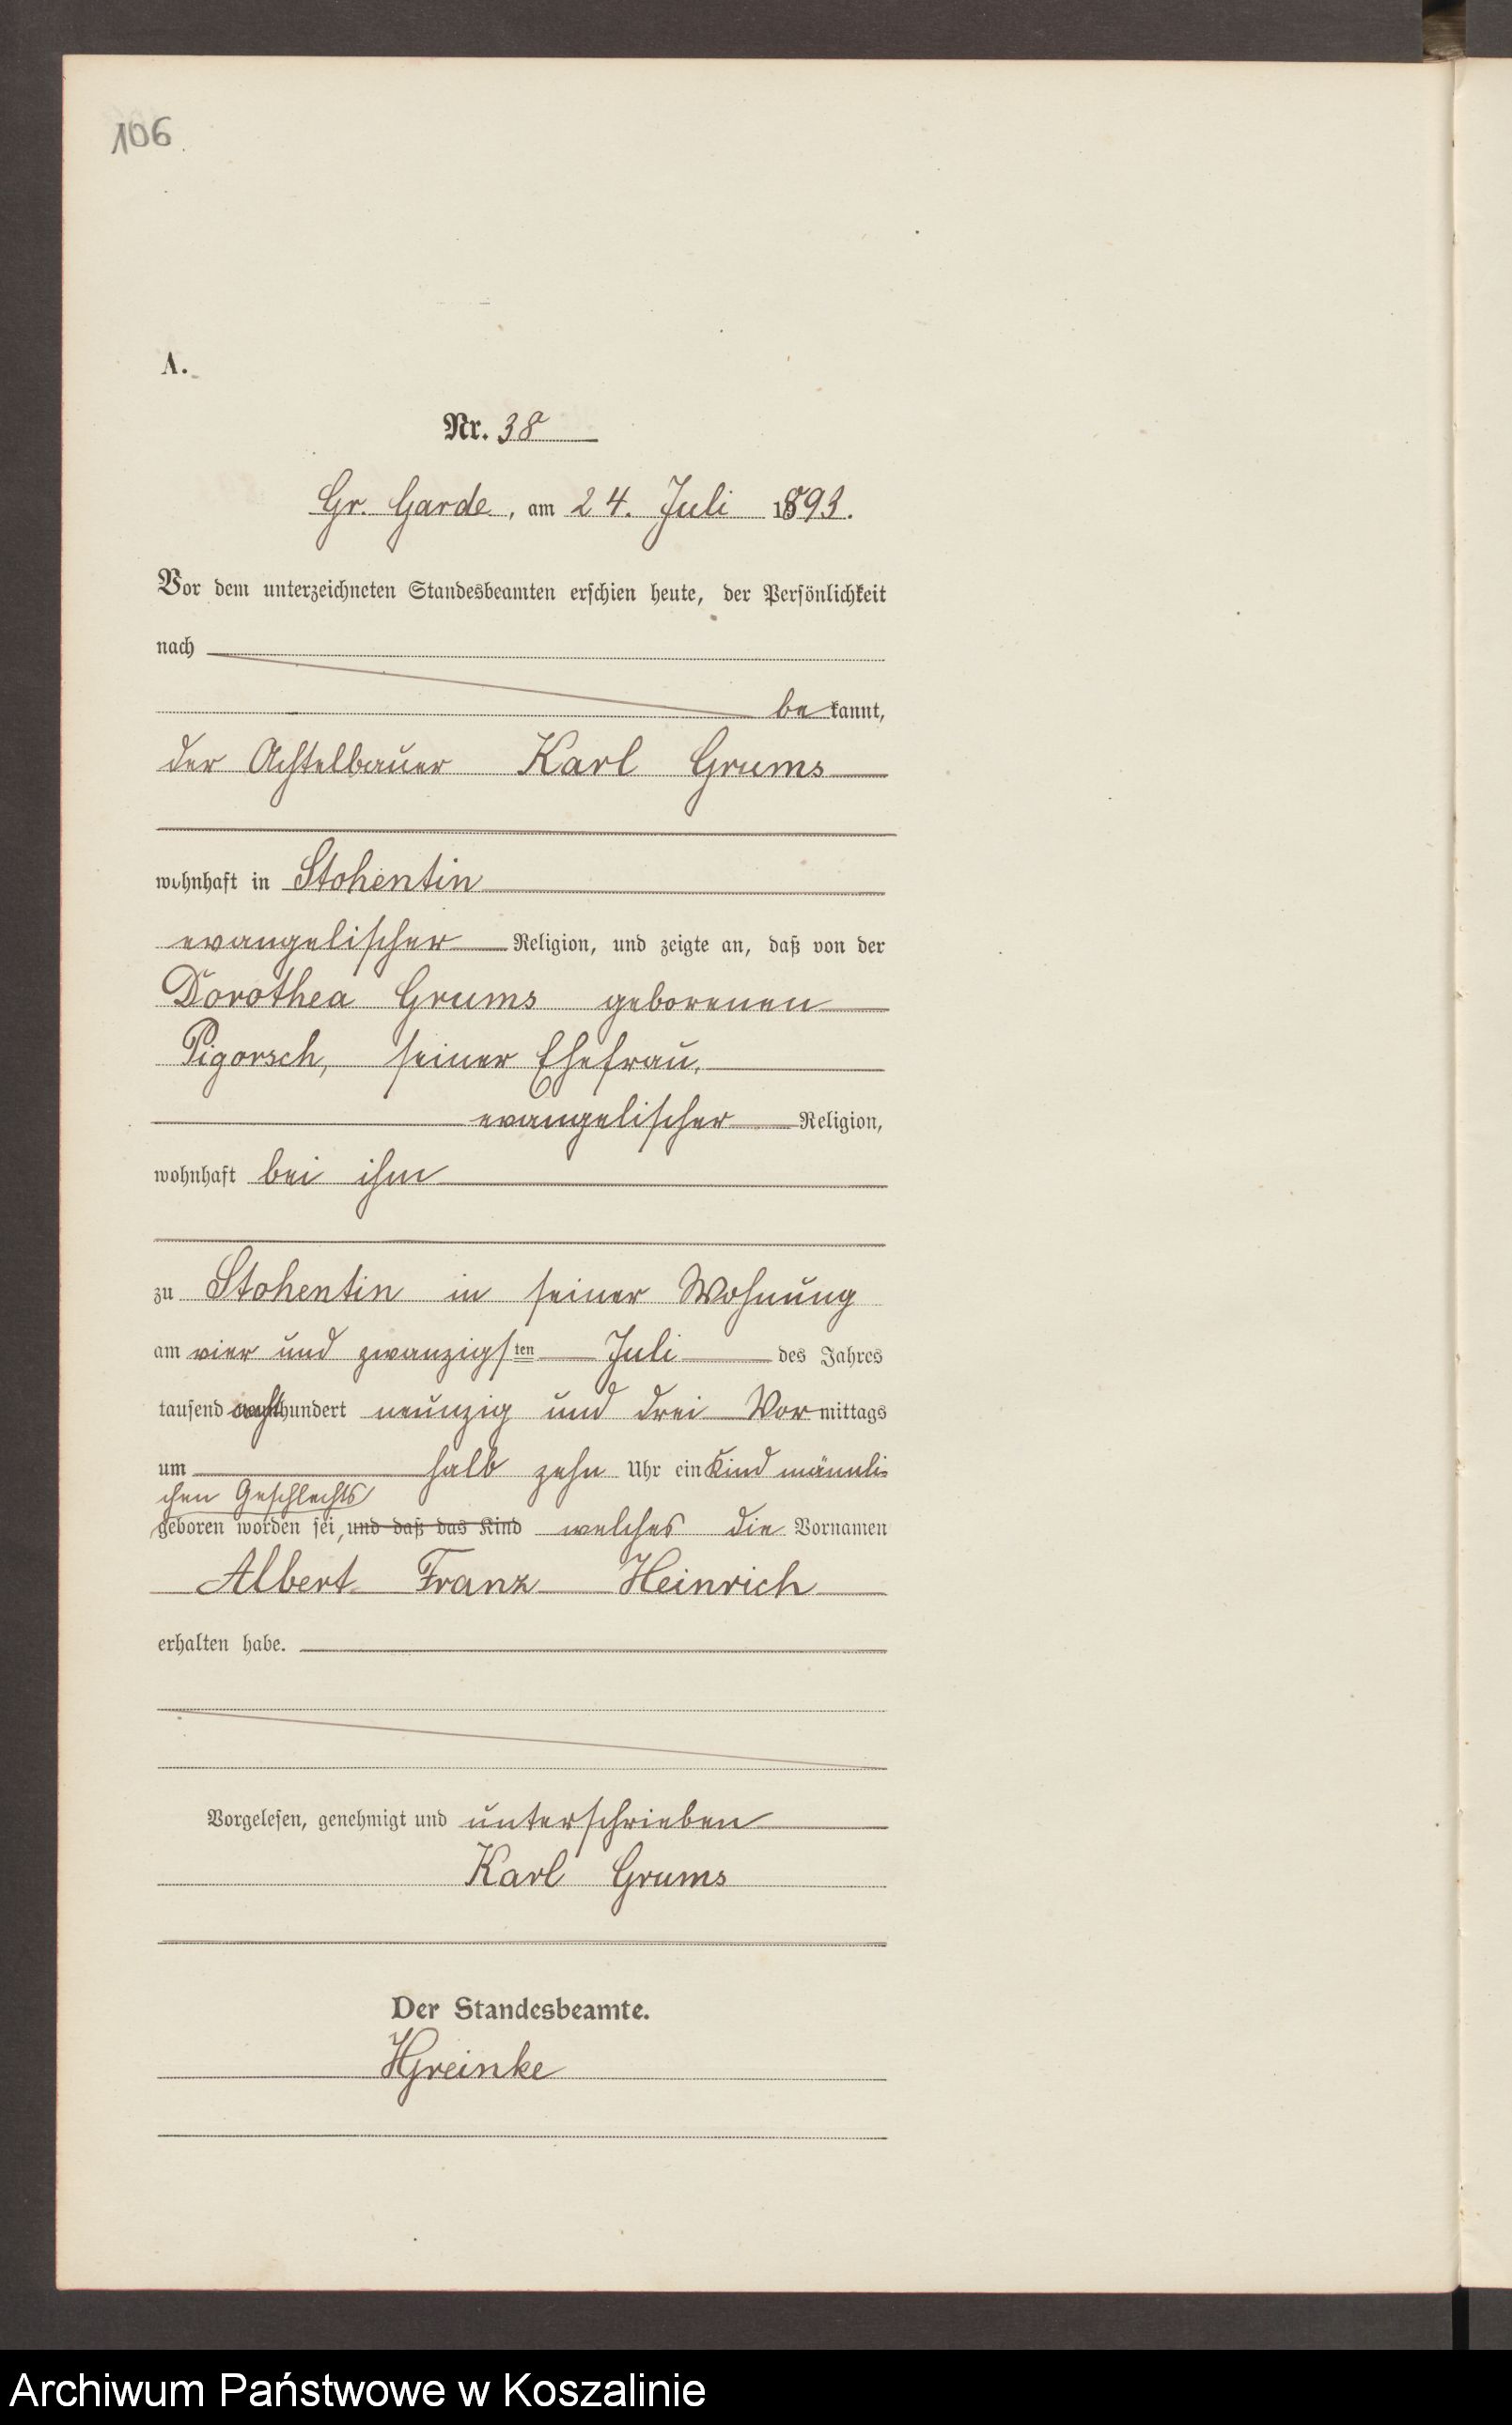 106
A.
Nr. 38
Gr. Garde, am 24. Juli 1893.
Vor dem unterzeichneten Standesbeamten erschien heute, der Persönlichkeit
nach
bekannt,
der Achtelbauer Karl Grums
wohnhaft in Stohentin
evangelischer Religion, und zeigte an, daß von der
Dorothea Grums geborenen
Pigorsch, seiner Ehefrau,
evangelischer Religion,
wohnhaft bei ihm
zu Stohentin in seiner Wohnung
am vier und zwanzigsten Juli des Jahres
tausend achthundert neunzig und drei Vormittags
um halb zehn Uhr ein Kind männli-
chen Geschlechts
geboren worden sei, und daß das Kind welches die Vornamen
Albert Franz Heinrich
erhalten habe.
Vorgelesen, genehmigt und unterschrieben
Karl Grums
Der Standesbeamte.
HGreinke
Archiwum Państwowe w Koszalinie